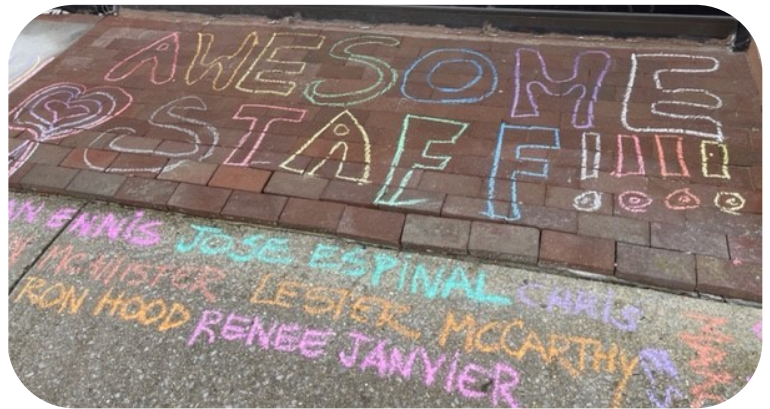 AWESOME
STAFF!!!!
ENNIS JOSE ESPINAL CHRIS
LESTER MCCARTHY
RON HOOD
RENEE JANVIER